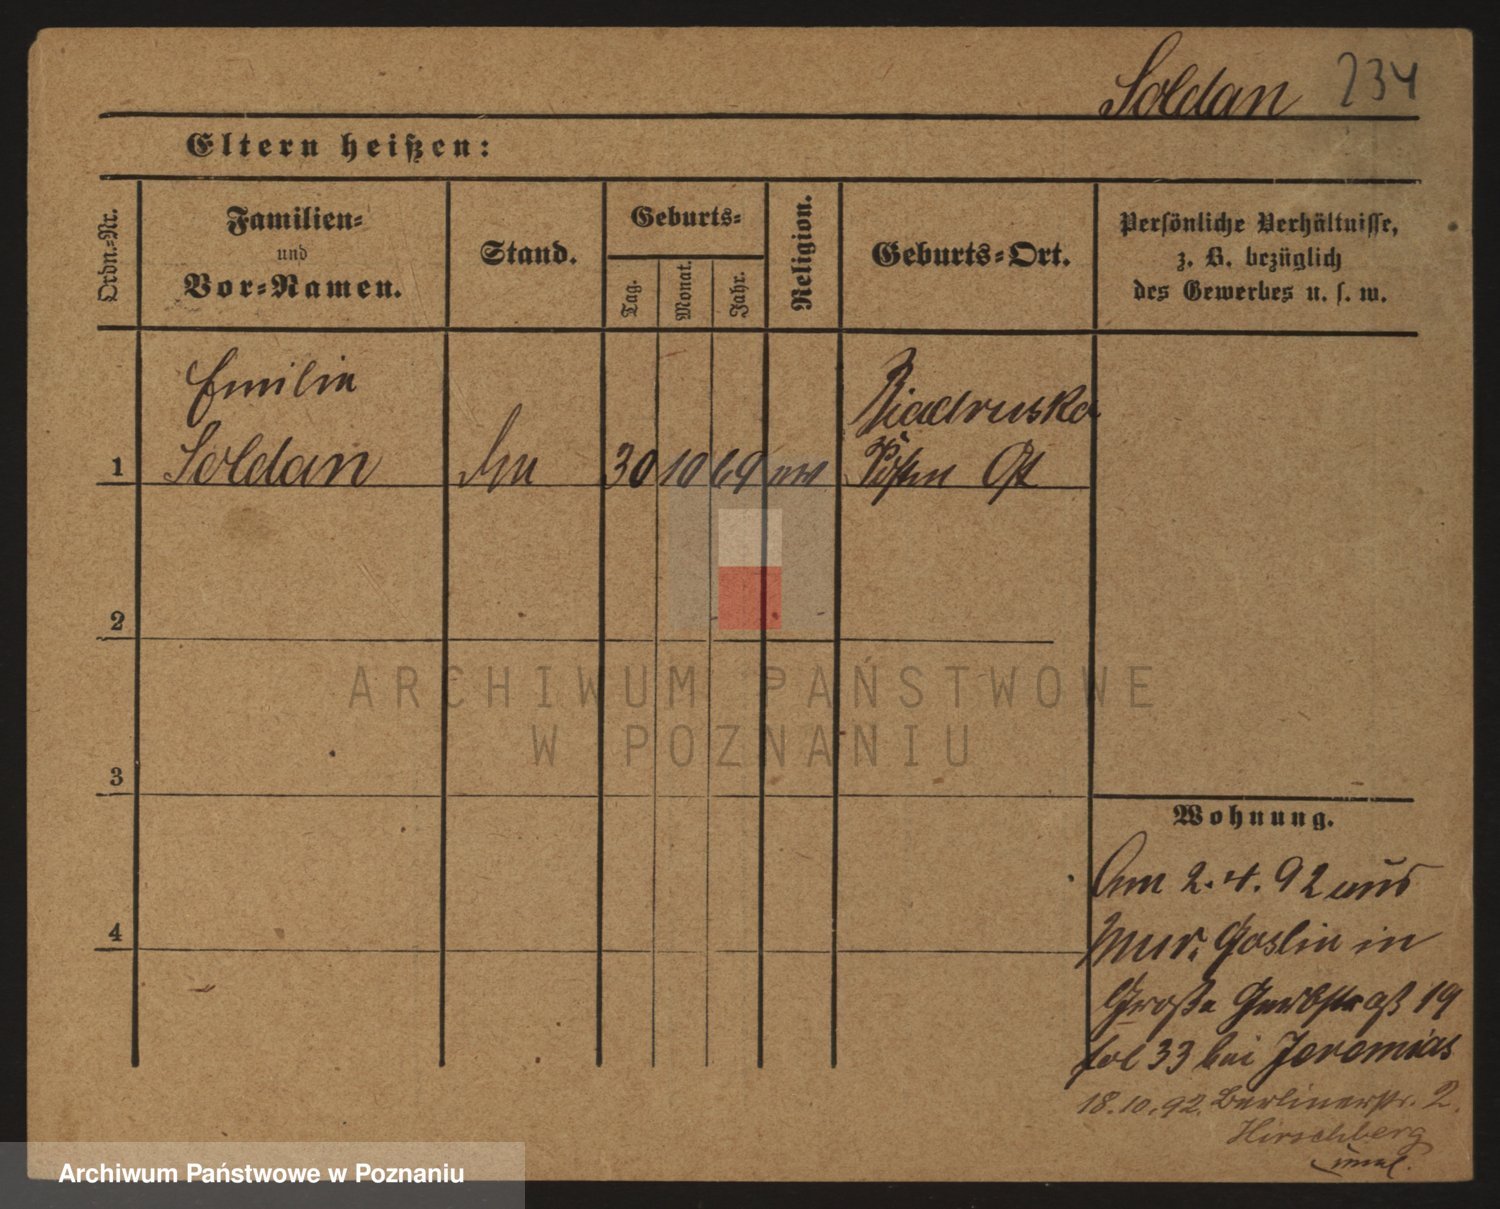 Soldan 234
Eltern heißen:
Ordn.-Nr.
Familien-
und
Vor-Namen.
Stand.
Geburts-
Tag.
Monat.
Jahr.
Religion.
Geburts-Ort.
Persönliche Verhältnisse,
z. B. bezüglich
des Gewerbes u. s. w.
Emilie
Biedrusko
1 Soldan 30 10 69 Posen Ost
2
3
4
Wohnung.
Am 2.4.92 aus
Mur. Goslin in
Große Gerberstraß 19
fol 33 bei Jeremias
18.10.92. Berlinerstr. 2.
Hirschberg
ARCHIWUM PAŃSTWOWE
W POZNANIU
Archiwum Państwowe w Poznaniu